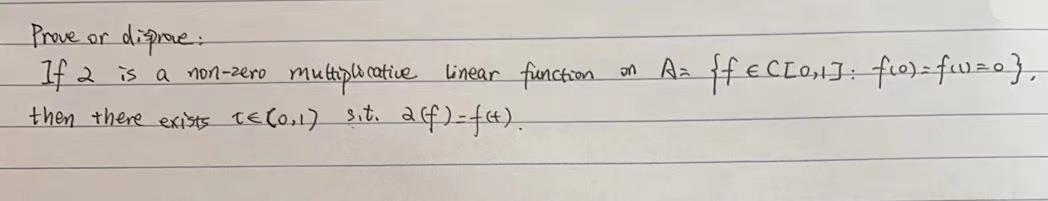 Prove or disprove:
If α is a non-zero multiplicative linear function on A = {f ∈ C[0,1]: f(0)=f(1)=0},
then there exists t∈(0,1) s.t. α(f)=f(t).